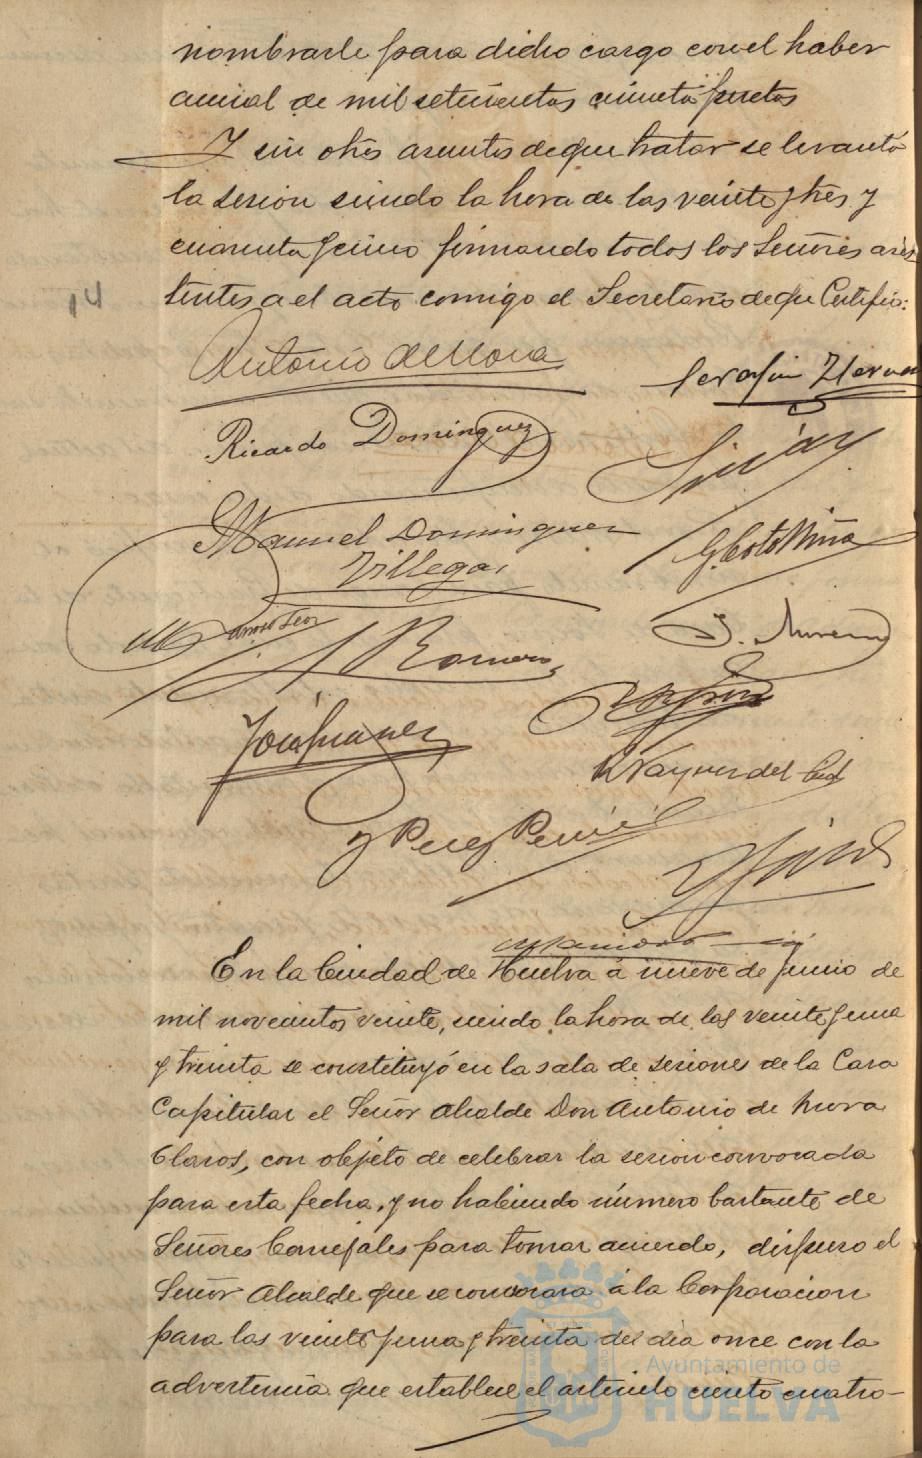 nombrarle para dicho cargo con el haber
anual de mil setecientas cincuenta pesetas
Y sin otros asuntos de que tratar se levantó
la sesion siendo la hora de las veinte y tres y
cuarenta y cinco firmando todos los Señores asis
tentes a el acto conmigo el Secretario de que Certifico:
14
Antonio de Mora
Serafin
Ricardo Dominguez
Manuel Dominguez
Villegas
G. Coto Miña
J. Moreno
Romero
José Juarez
Vazquez del Cid
J Perez
En la Ciudad de Huelva á nueve de Junio de
mil novecientos veinte, siendo la hora de las veinte y una
y treinta se constituyó en la sala de sesiones de la Casa
Capitular el Señor Alcalde Don Antonio de Mora
Claros, con objeto de celebrar la sesion convocada
para esta fecha, y no habiendo número bastante de
Señores Concejales para tomar acuerdo, dispuso el
Señor Alcalde que se convocara á la Corporacion
para las veinte y una y treinta del dia once con la
advertencia que establece el articulo ciento cuatro-
Ayuntamiento de
HUELVA